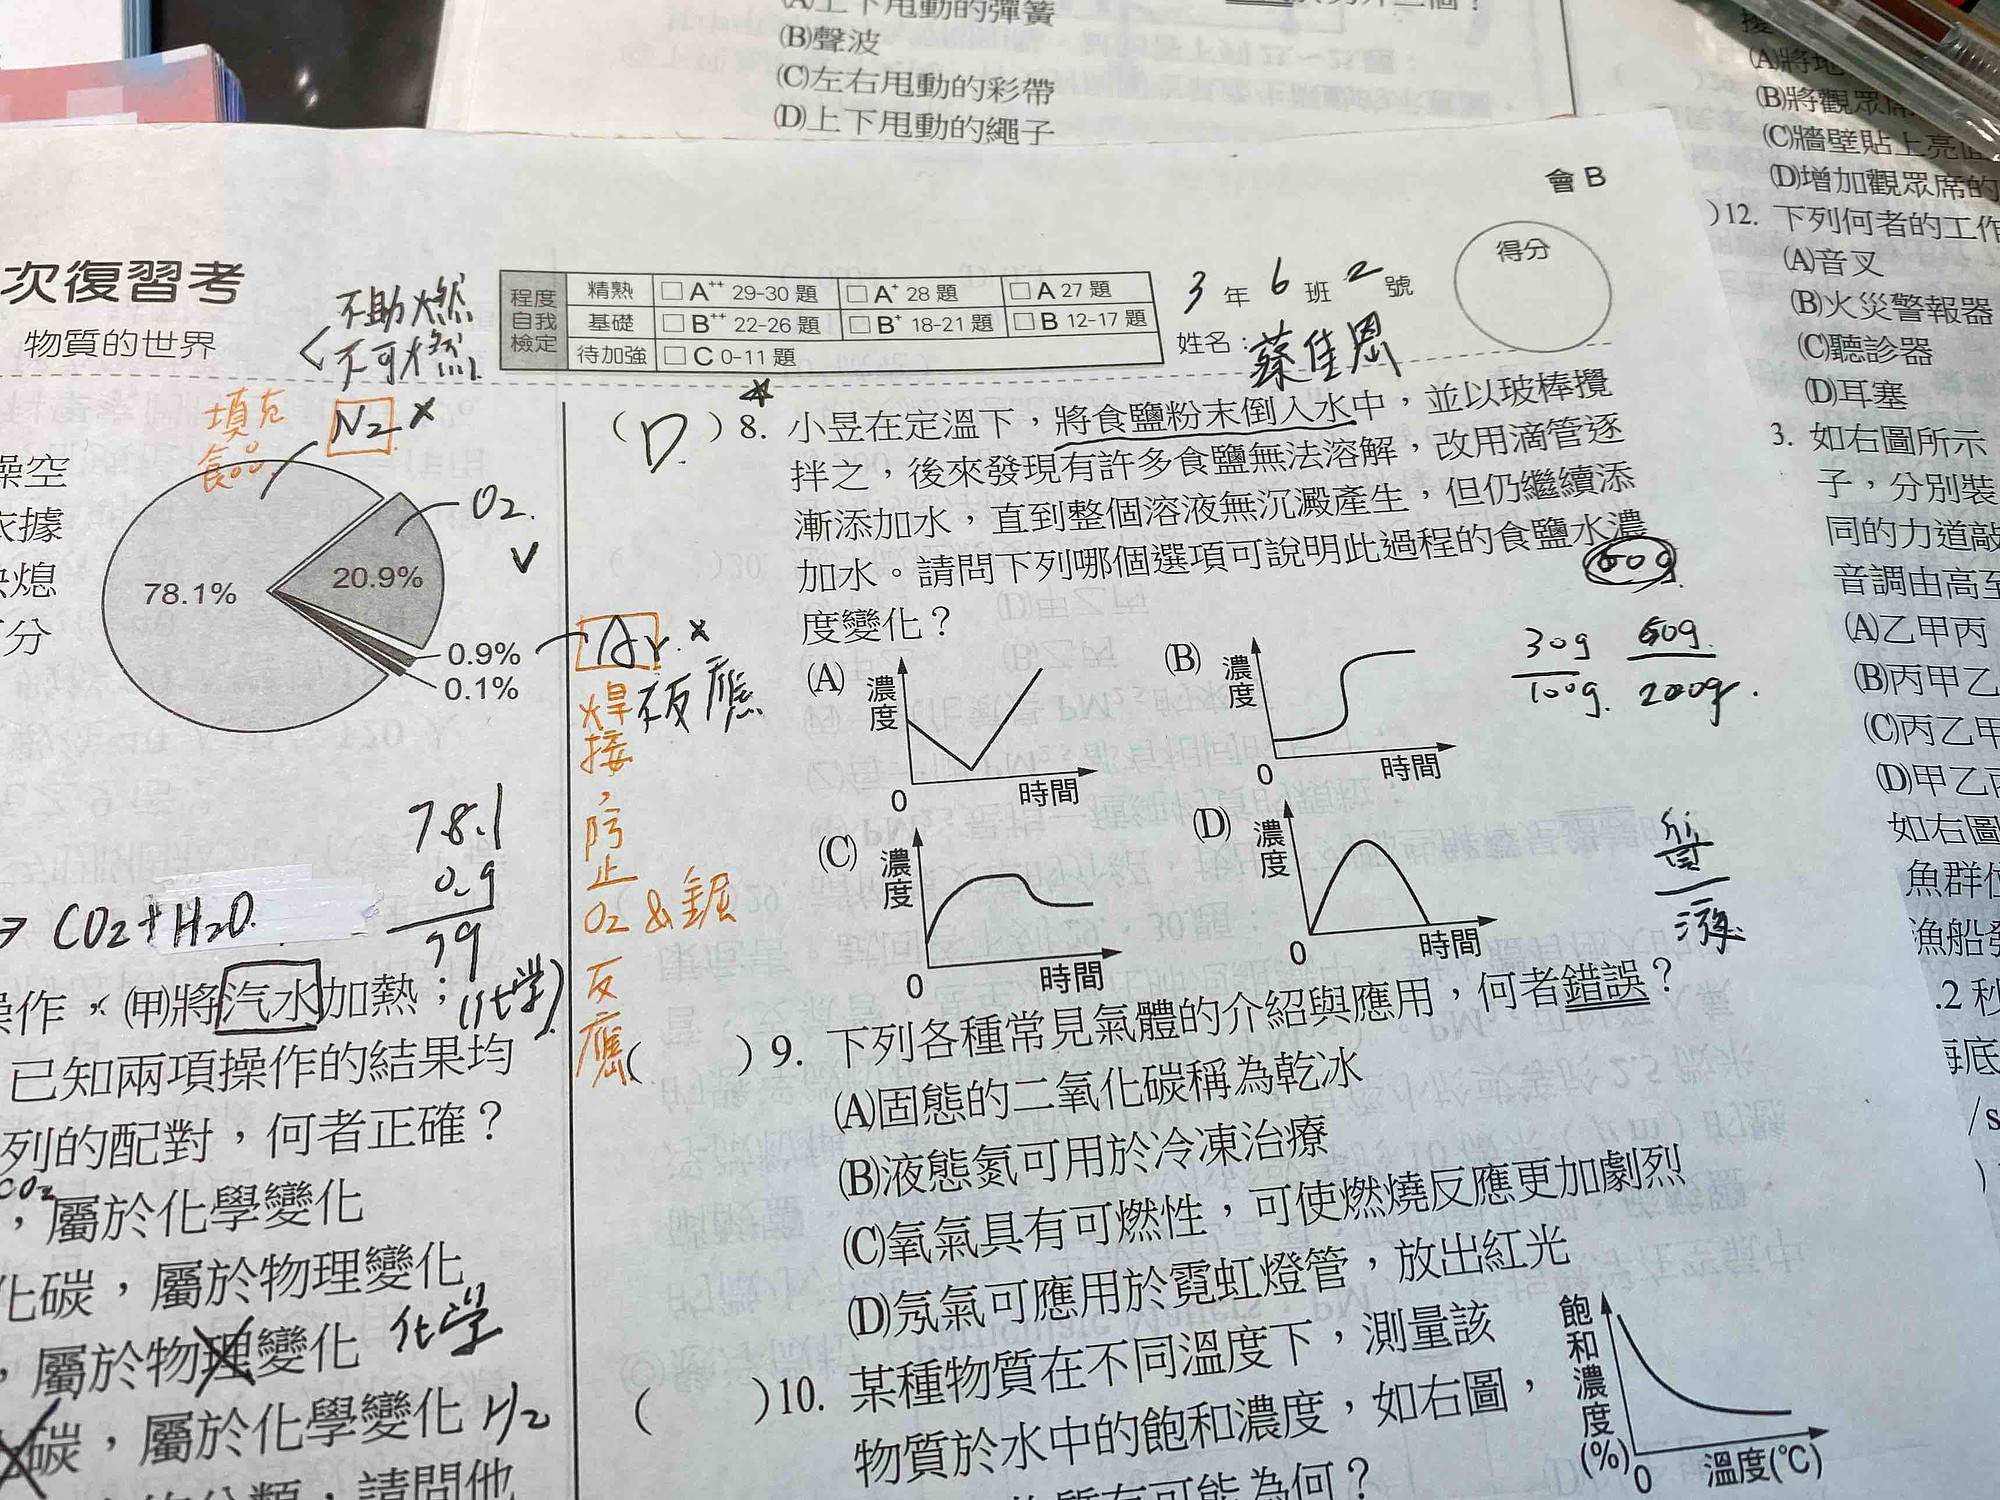 (A)上下甩動的彈簧
(B)聲波
(C)左右甩動的彩帶
(D)上下甩動的繩子
(A)將地
(B)將觀眾席
(C)牆壁貼上亮面
(D)增加觀眾席的
)12. 下列何者的工作
(A)音叉
(B)火災警報器
(C)聽診器
(D)耳塞
3. 如右圖所示
子，分別裝
同的力道敲
音調由高至
(A)乙甲丙
(B)丙甲乙
(C)丙乙甲
(D)甲乙丙
如右圖
魚群位
漁船發
.2 秒
海底
/s
會 B
次復習考
物質的世界
不助燃
不可燃
程度自我檢定
精熟 □ A++ 29-30 題 □ A+ 28 題 □ A 27 題
基礎 □ B++ 22-26 題 □ B+ 18-21 題 □ B 12-17 題
待加強 □ C 0-11 題
3 年 6 班 2 號
姓名：蔡佳恩
得分
填充
食品
N2 ×
O2
78.1%
20.9%
0.9%
0.1%
Ar ×
不反應
焊接，防止
O2 & 鋁
反應
燥空
依據
快熄
百分
78.1
0.9
79
→ CO2+H2O
操作 × (甲)將汽水加熱；
(化學)
已知兩項操作的結果均
列的配對，何者正確？
CO2
，屬於化學變化
化碳，屬於物理變化
，屬於物理變化 化學
碳，屬於化學變化 H2
請問他
(D) 8. 小昱在定溫下，將食鹽粉末倒入水中，並以玻棒攪
拌之，後來發現有許多食鹽無法溶解，改用滴管逐
漸添加水，直到整個溶液無沉澱產生，但仍繼續添
加水。請問下列哪個選項可說明此過程的食鹽水濃
度變化？
60g
30g
100g
60g
200g
(A) 濃度 0 時間
(B) 濃度 0 時間
(C) 濃度 0 時間
(D) 濃度 0 時間
質
液
( )9. 下列各種常見氣體的介紹與應用，何者錯誤？
(A)固態的二氧化碳稱為乾冰
(B)液態氮可用於冷凍治療
(C)氧氣具有可燃性，可使燃燒反應更加劇烈
(D)氖氣可應用於霓虹燈管，放出紅光
( )10. 某種物質在不同溫度下，測量該
物質於水中的飽和濃度，如右圖，
物質有可能為何？
飽和濃度(%)
0 溫度(℃)